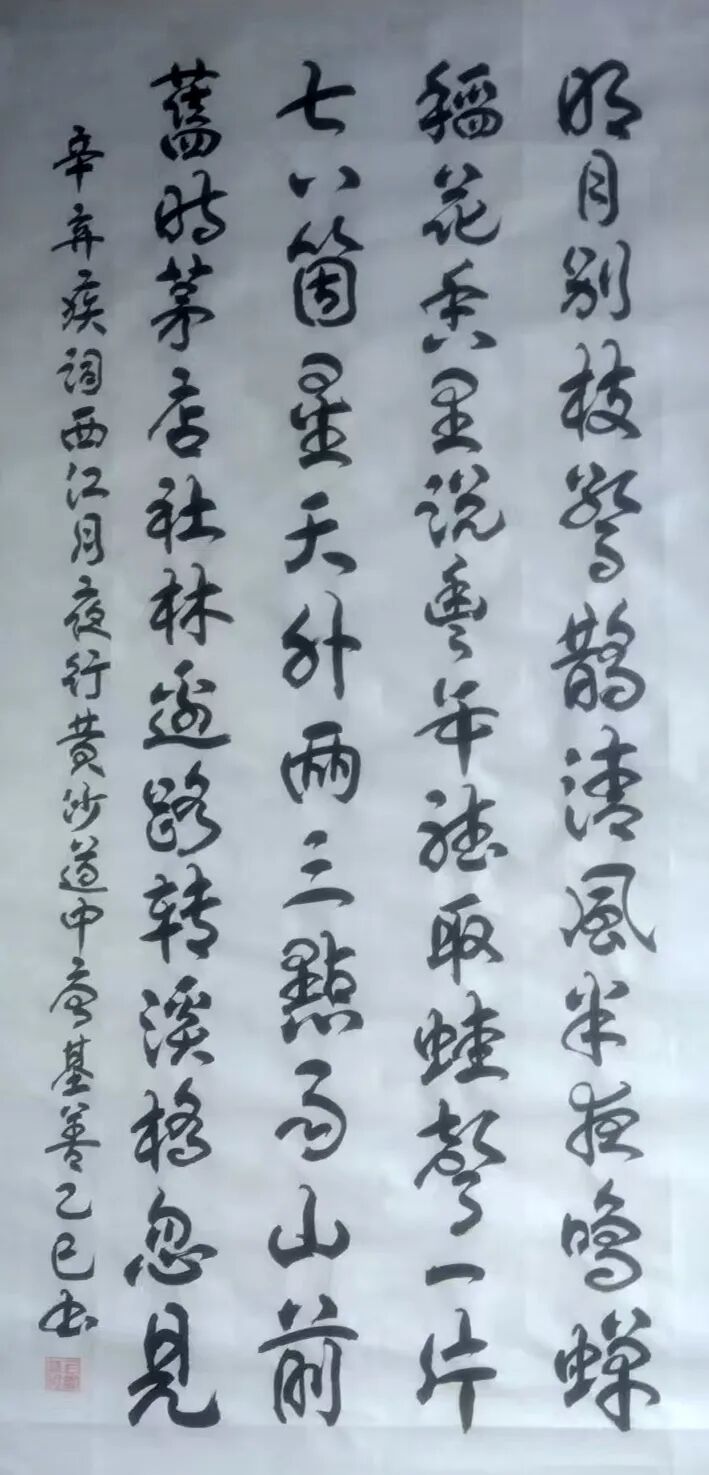 明月别枝驚鵲清風半夜鳴蟬
稻花香里説豐年聽取蛙聲一片
七八箇星天外兩三點雨山前
舊時茅店社林邊路轉溪橋忽見
辛弃疾詞西江月夜行黄沙道中 基善乙巳書